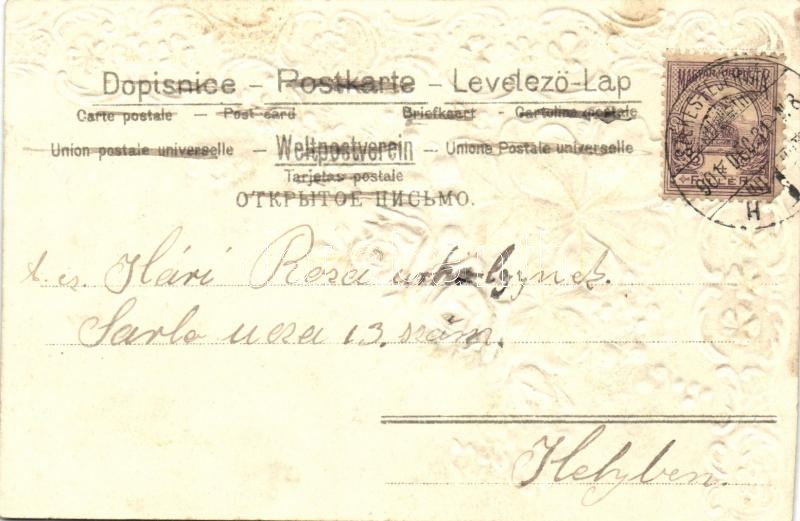 Dopisnice – Postkarte – Levelező-Lap
Carte postale – Post card Briefkaart – Cartolina postale
Union postale universelle – Weltpostverein – Unione Postale universelle
Tarjetas postale
ОТКРЫТОЕ ПИСЬМО.
t. cs. Hári Rosa urhölgynek.
Sarlo ucsa 13. szám.
Helyben.